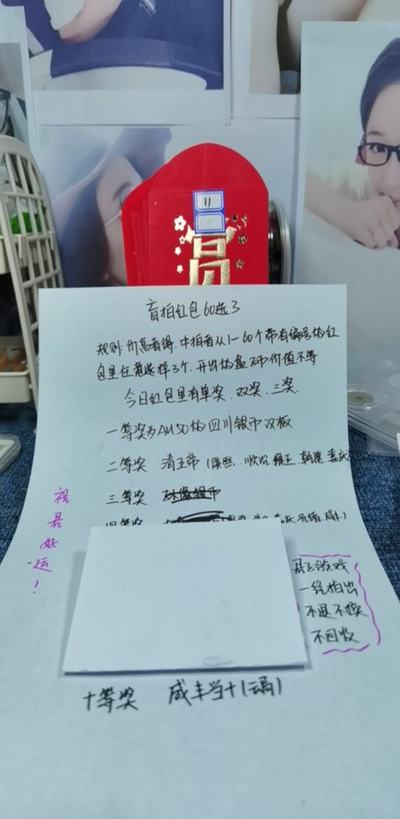 11
盲拍红包60选3
规则:价高者得.中拍者从1-60个带有编号的红
包里任意选择3个.开出的盒子币价值不等
今日红包里有单奖、双奖、三奖.
一等奖为AU50的四川银币汉板
二等奖 清五帝(康熙.顺治 雍正 乾隆 嘉庆
三等奖
四等奖
祝君好运!
一经拍出
不退不换
不回收
十等奖 咸丰当十(云局)